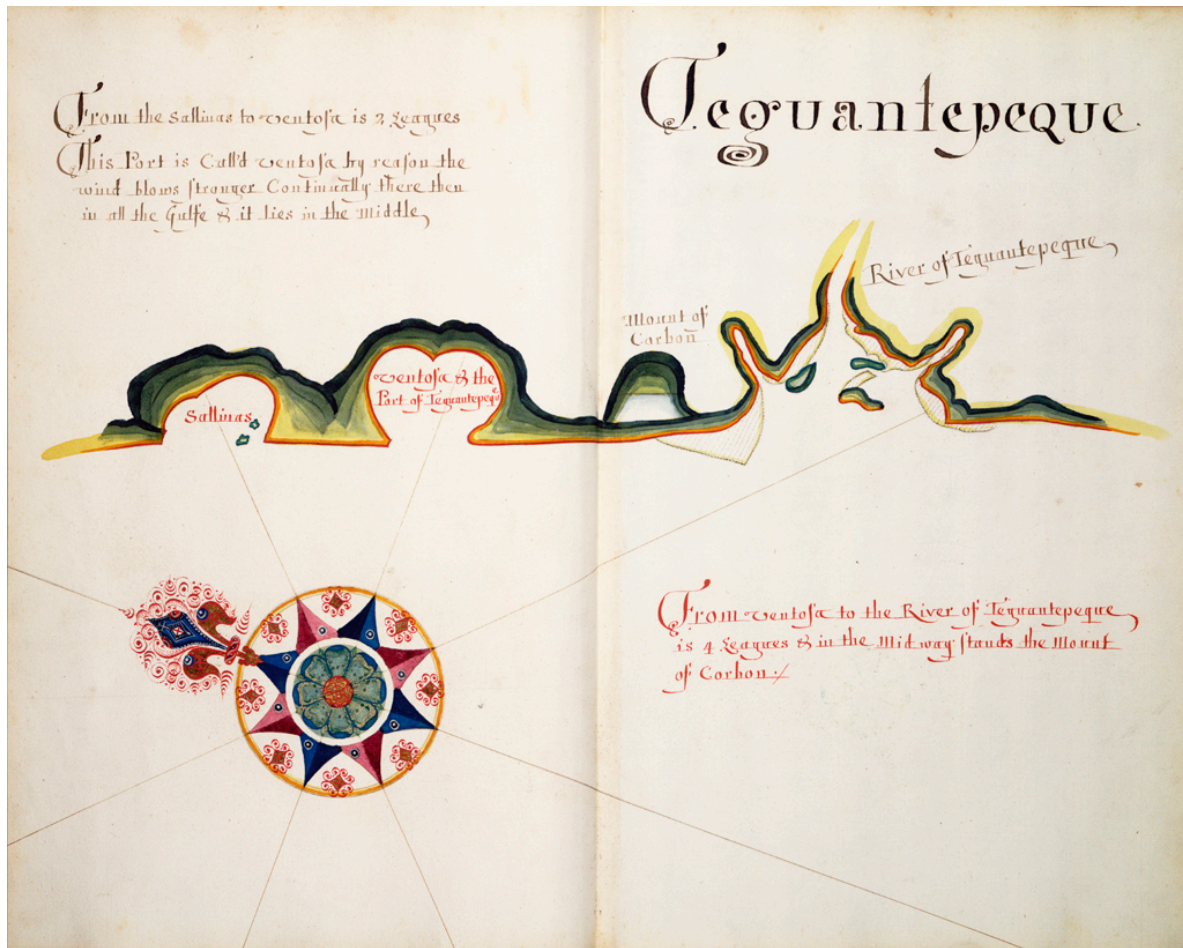 From the Sallinas to Ventosa is 2 Leagues
This Port is Call'd Ventosa by reason the
wind blows stronger Continually there then
in all the Gulfe & it lies in the Middle
Teguantepeque
River of Teguantepeque
Mount of
Corbon
Ventosa & the
Port of Teguantepeqe
Sallinas
From Ventosa to the River of Teguantepeque
is 4 Leagues & in the Midway stands the Mount
of Corbon